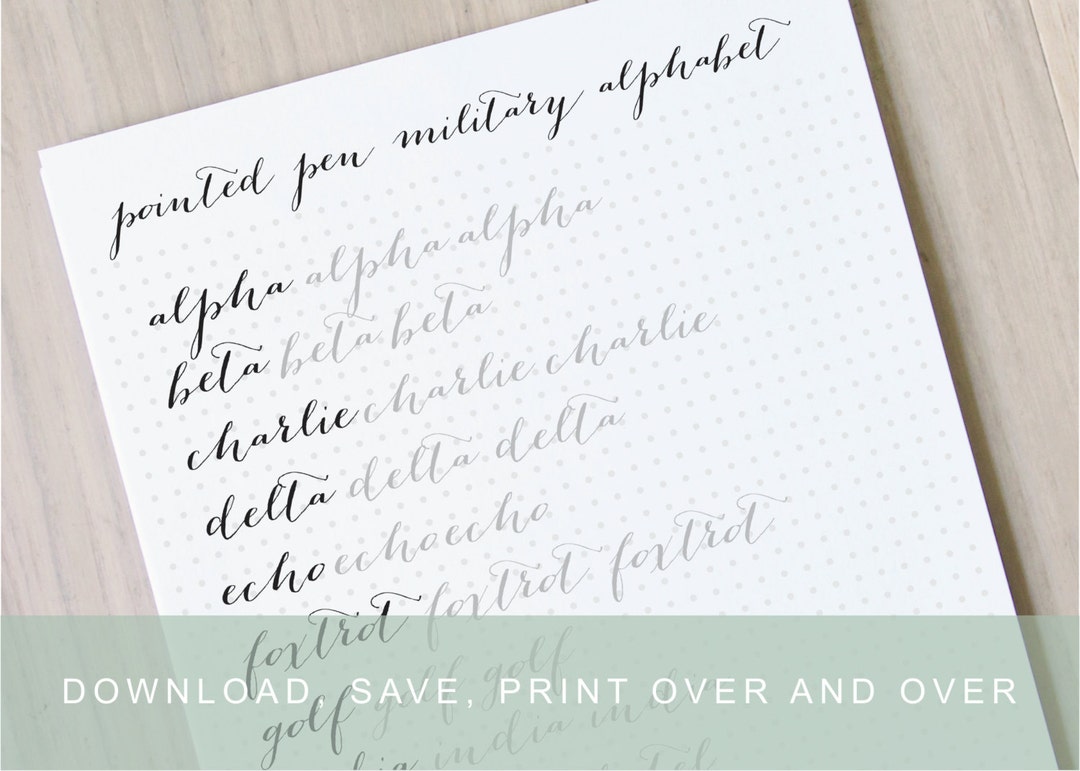 pointed pen military alphabet
alpha alpha alpha
beta beta beta
charlie charlie charlie
delta delta delta
echo echo echo
foxtrot foxtrot foxtrot
DOWNLOAD, SAVE, PRINT OVER AND OVER
golf golf golf
india india